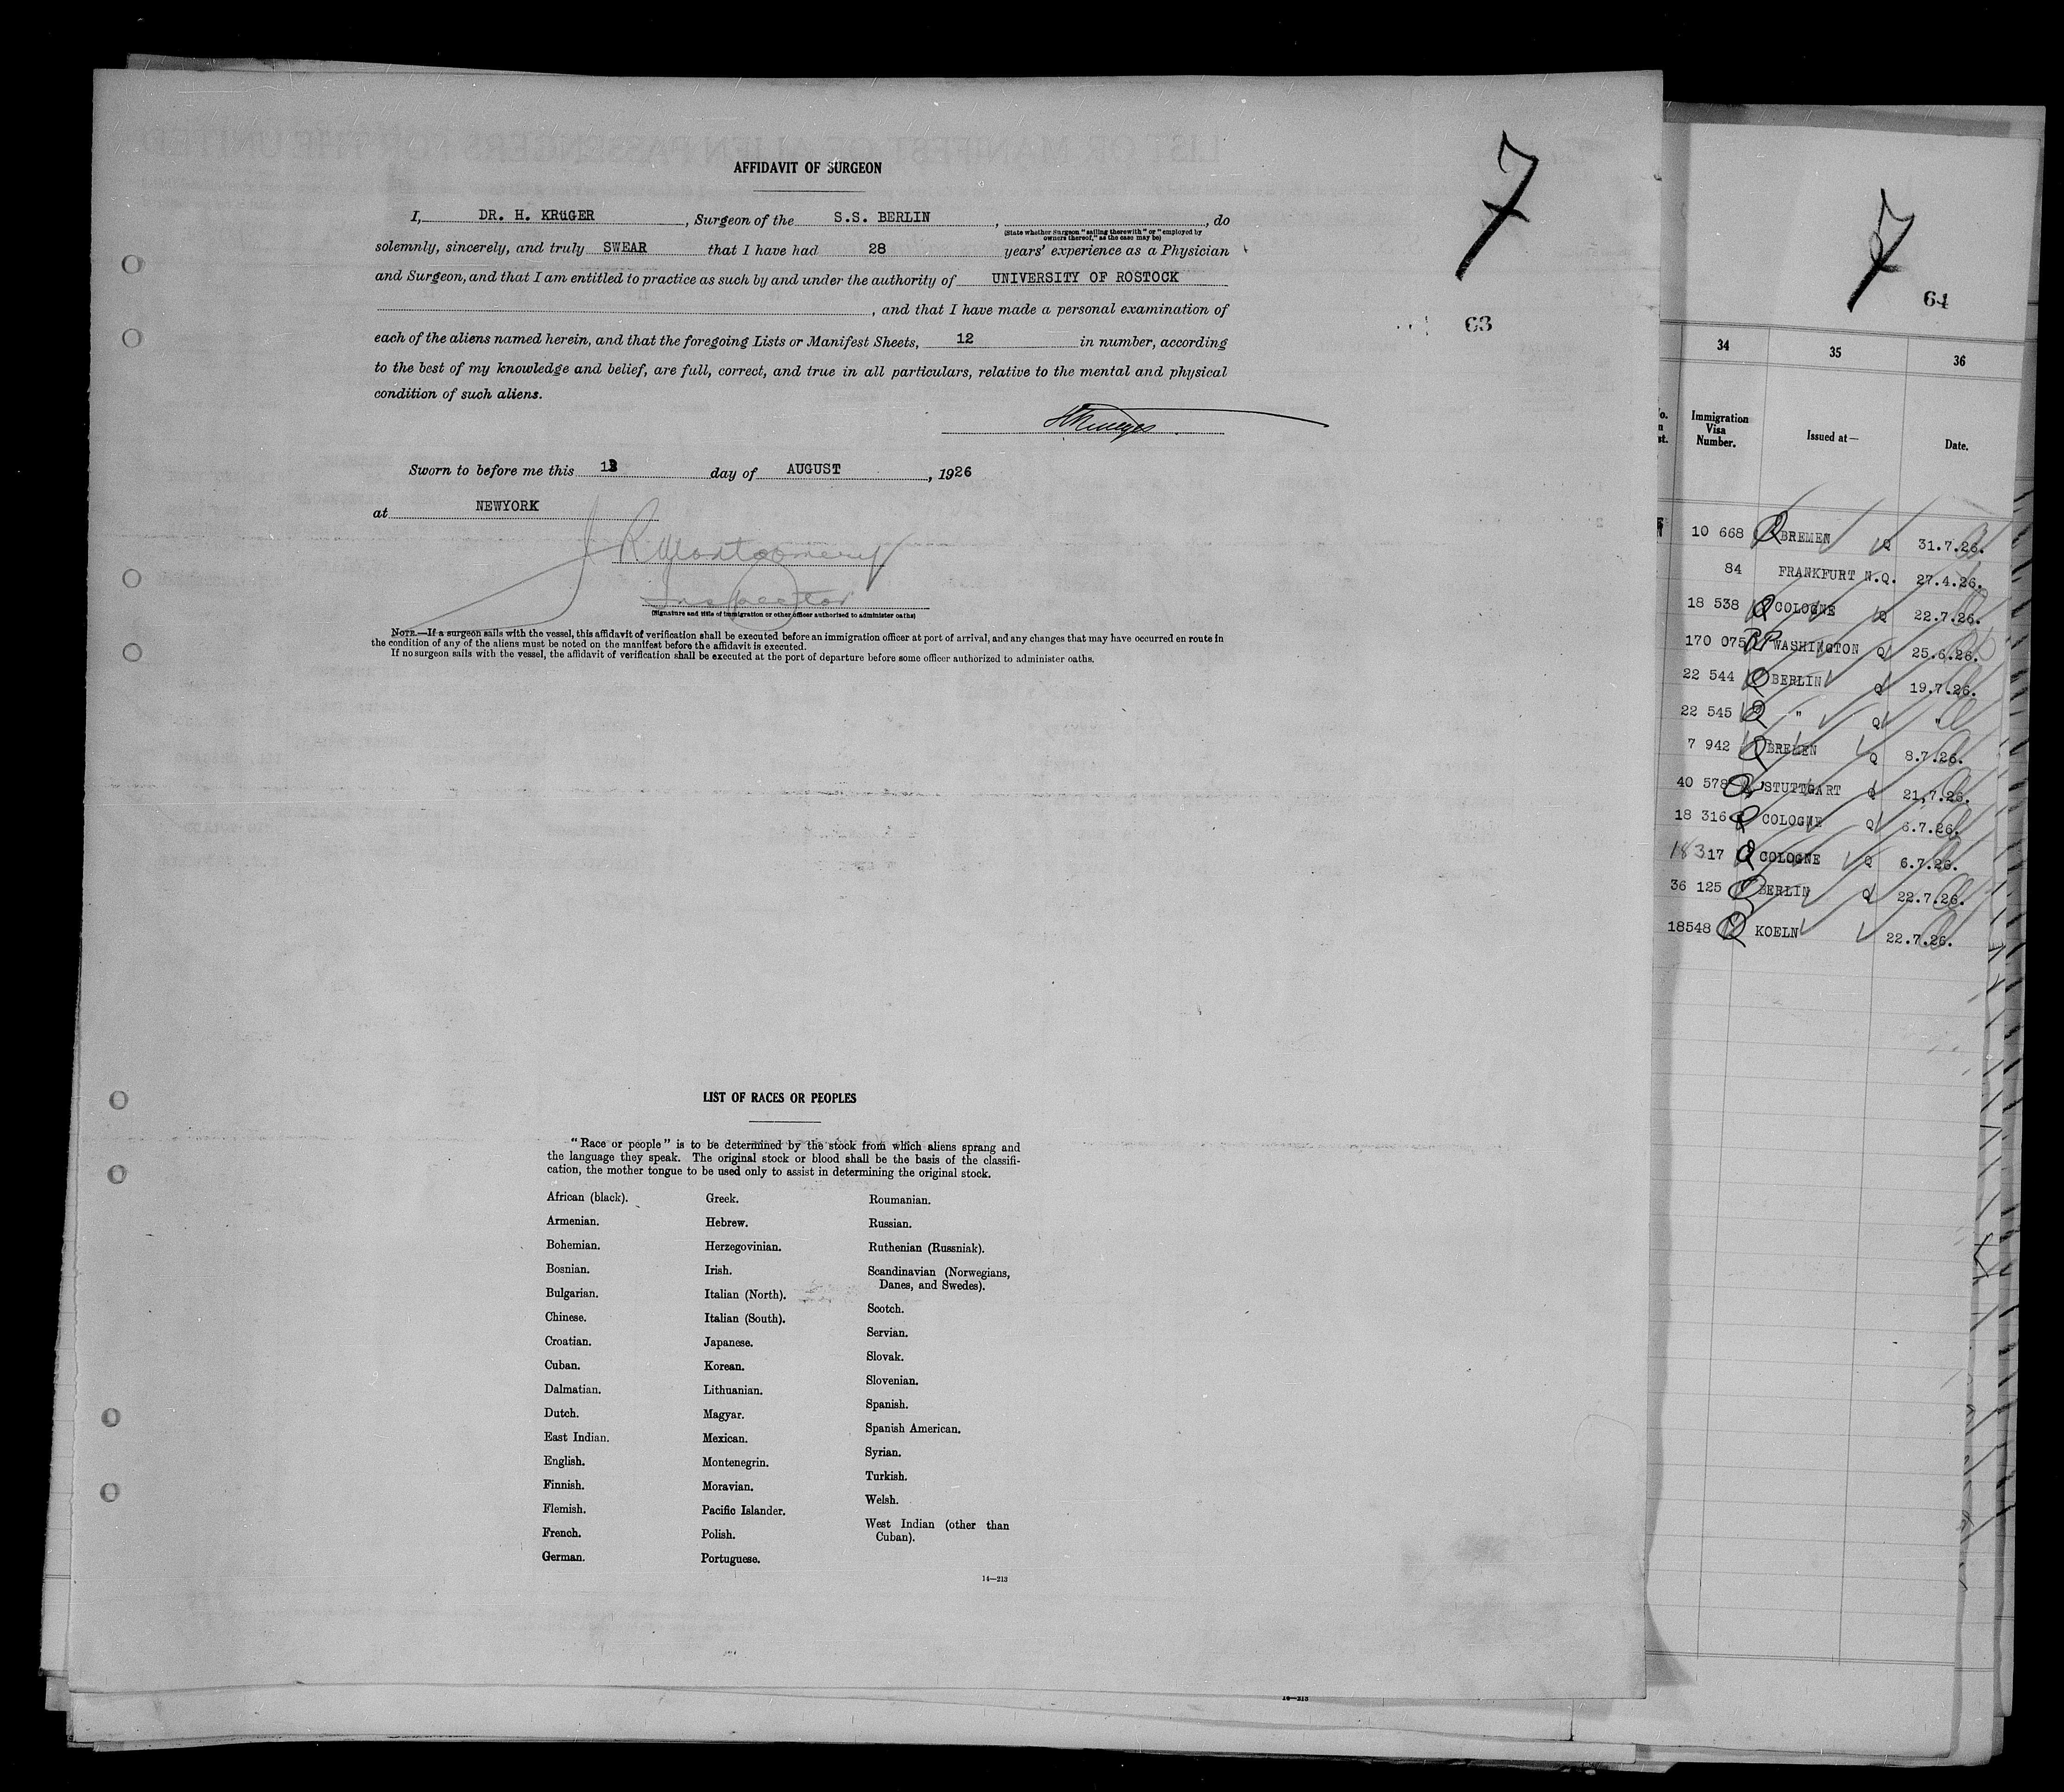 7
AFFIDAVIT OF SURGEON
I, DR. H. KRüGER, Surgeon of the S.S. BERLIN, , do
(State whether Surgeon "sailing therewith" or "employed by
owners thereof," as the case may be)
solemnly, sincerely, and truly SWEAR that I have had 28 years' experience as a Physician
and Surgeon, and that I am entitled to practice as such by and under the authority of UNIVERSITY OF ROSTOCK
, and that I have made a personal examination of
63
each of the aliens named herein, and that the foregoing Lists or Manifest Sheets, 12 in number, according
to the best of my knowledge and belief, are full, correct, and true in all particulars, relative to the mental and physical
condition of such aliens.
Sworn to before me this day of AUGUST, 1926
at NEWYORK
J R Montgomery
Inspector
(Signature and title of immigration or other officer authorized to administer oaths)
NOTE.—If a surgeon sails with the vessel, this affidavit of verification shall be executed before an immigration officer at port of arrival, and any changes that may have occurred en route in
the condition of any of the aliens must be noted on the manifest before the affidavit is executed.
If no surgeon sails with the vessel, the affidavit of verification shall be executed at the port of departure before some officer authorized to administer oaths.
LIST OF RACES OR PEOPLES
"Race or people" is to be determined by the stock from which aliens sprang and
the language they speak. The original stock or blood shall be the basis of the classifi-
cation, the mother tongue to be used only to assist in determining the original stock.
African (black).
Armenian.
Bohemian.
Bosnian.
Bulgarian.
Chinese.
Croatian.
Cuban.
Dalmatian.
Dutch.
East Indian.
English.
Finnish.
Flemish.
French.
German.
Greek.
Hebrew.
Herzegovinian.
Irish.
Italian (North).
Italian (South).
Japanese.
Korean.
Lithuanian.
Magyar.
Mexican.
Montenegrin.
Moravian.
Pacific Islander.
Polish.
Portuguese.
Roumanian.
Russian.
Ruthenian (Russniak).
Scandinavian (Norwegians,
Danes, and Swedes).
Scotch.
Servian.
Slovak.
Slovenian.
Spanish.
Spanish American.
Syrian.
Turkish.
Welsh.
West Indian (other than
Cuban).
14—213
7
64
34 35 36
Immigration
Visa
Number.
Issued at—
Date.
10 668 BREMEN Q 31.7.26.
84 FRANKFURT N.Q. 27.4.26.
18 538 COLOGNE Q 22.7.26.
170 075 WASHINGTON Q 25.6.26.
22 544 BERLIN Q 19.7.26.
22 545 " Q "
7 942 BREMEN Q 8.7.26.
40 578 STUTTGART Q 21.7.26.
18 316 COLOGNE Q 6.7.26.
18317 COLOGNE Q 6.7.26.
36 125 BERLIN Q 22.7.26.
18548 KOELN 22.7.26.